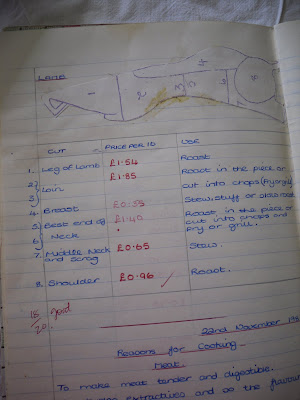 LAMB
1 2 3 4 5 6 7 8
CUT PRICE PER lb USE
1. Leg of Lamb £1.54 Roast
2) £1.85 Roast in the piece or
3) Loin cut into chops (fry or grill)
4. Breast £0.55 Stew, stuff or also roast
5) Best end of £1.40 Roast in the piece or
6) Neck cut into chops and
fry or grill.
7. Middle Neck £0.65 Stew.
and Scrag
8. Shoulder £0.96 Roast.
18/20 Good.
22nd November 19
Reasons for Cooking
Meat.
To make meat tender and digestible.
extractives and so the flavour